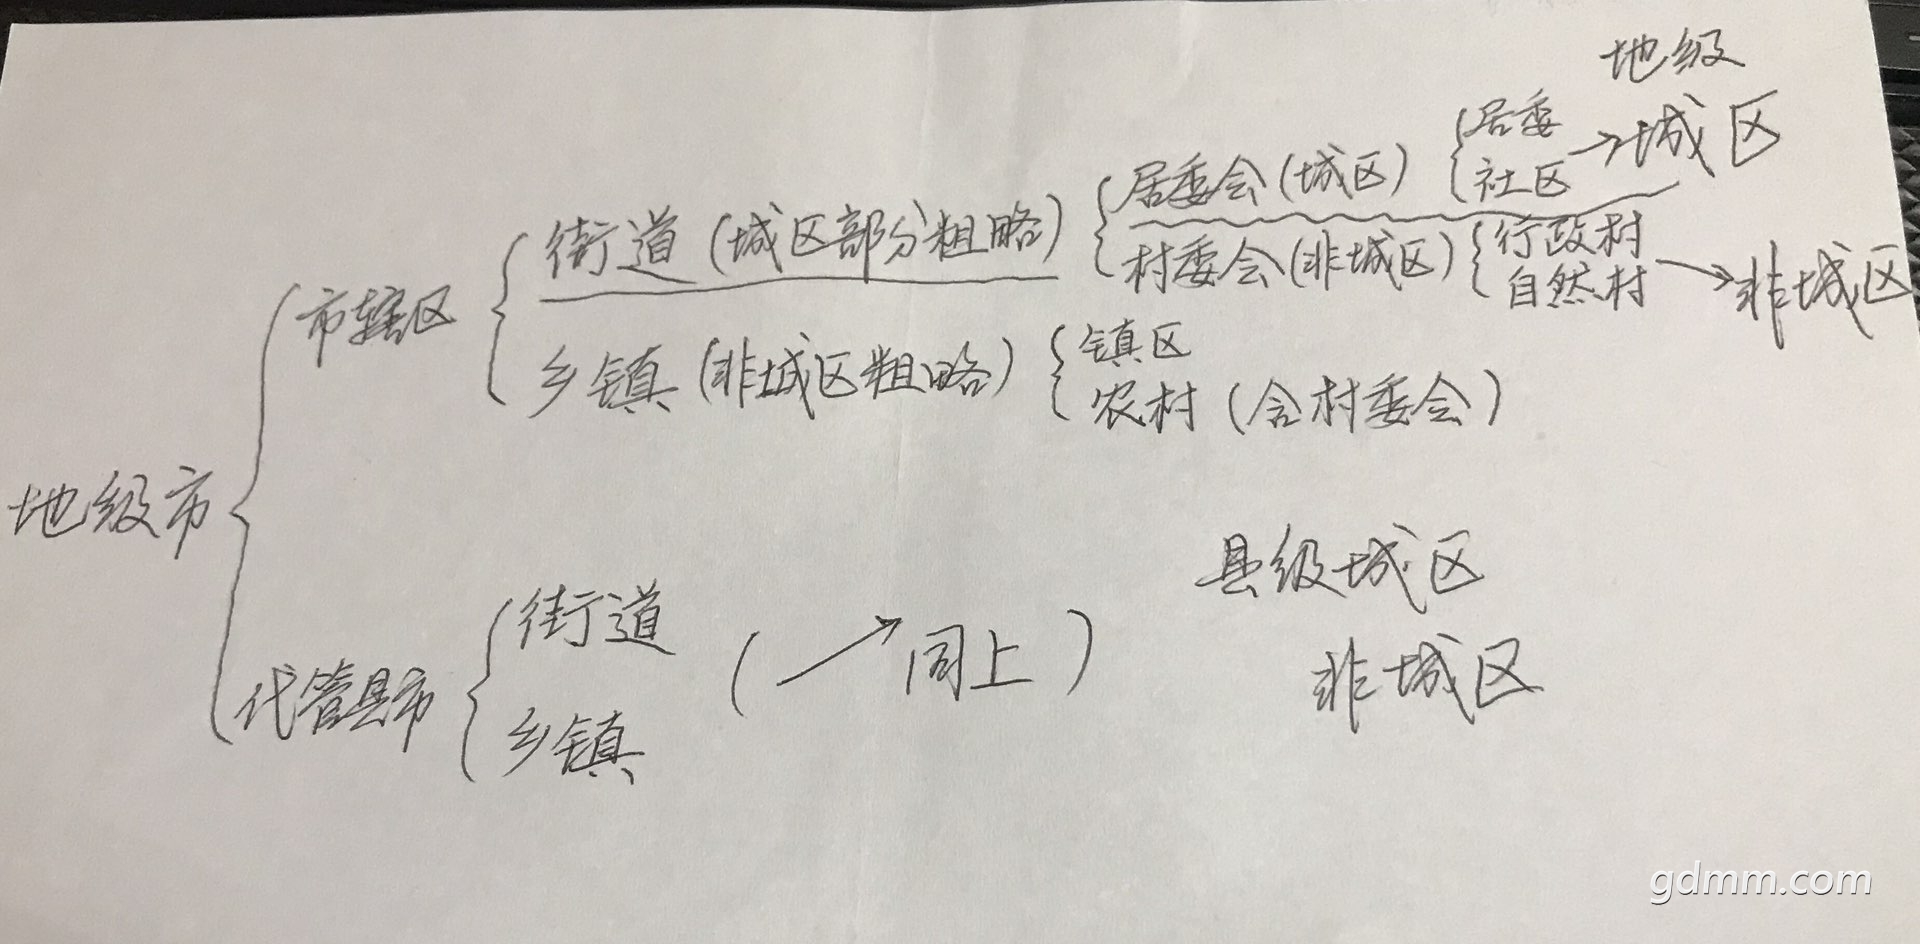 地级
居委
社区→城区
居委会(城区)
街道(城区部分粗略)
村委会(非城区)
行政村
自然村→非城区
市辖区
镇区
乡镇(非城区粗略)
农村(含村委会)
地级市
县级城区
街道
(→同上)
非城区
代管县市
乡镇
gdmm.com